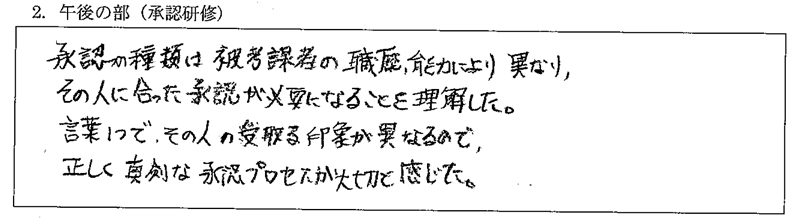 2. 午後の部(承認研修)
承認の種類は被考課者の職歴、能力により異なり、
その人に合った承認が必要になることを理解した。
言葉1つで、その人の受取る印象が異なるので、
正しく真剣な承認プロセスが大切と感じた。